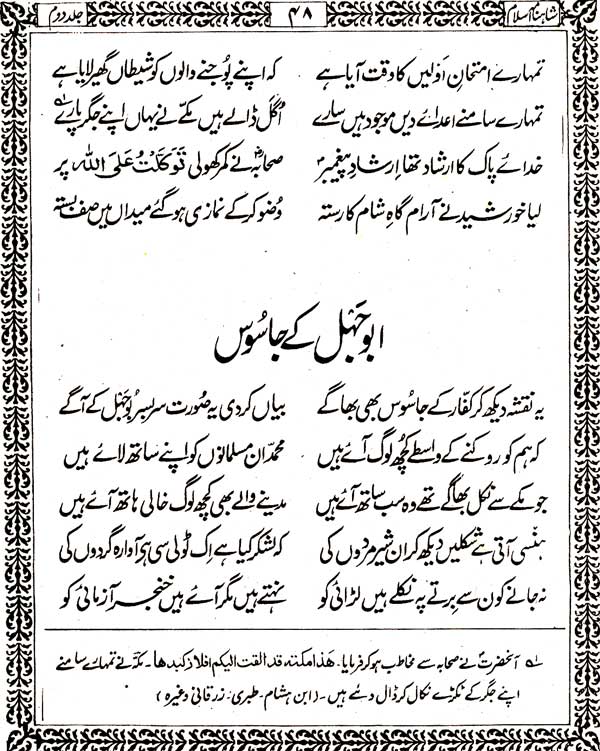 شاہنامۂ اسلام ۴۸ جلد دوم
تمہارے امتحانِ اوّلیں کا وقت آیا ہے کہ اپنے پُوجنے والوں کو شیطاں گھیر لایا ہے
تمہارے سامنے اعدائے دیں موجود ہیں سارے اُگل ڈالے ہیں مکّے نے یہاں اپنے جگر پارے ؎۱
خدائے پاک کا ارشاد تھا ارشادِ پیغمبرؐ صحابہؓ نے کمر کھولی تَوَکَّلْتُ عَلَی اللّٰہ پر
لیا خورشید نے آرام گاہِ شام کا رستہ وضو کر کے نمازی ہو گئے میداں میں صف بستہ
ابوجَہل کے جاسُوس
یہ نقشہ دیکھ کر کفّار کے جاسُوس بھی بھاگے بیاں کر دی یہ صُورت سربسر بُوجَہل کے آگے
کہ ہم کو روکنے کے واسطے کُچھ لوگ آئے ہیں محمدؐ ان مسلمانوں کو اپنے ساتھ لائے ہیں
جو مکّے سے نکل بھاگے تھے وہ سب ساتھ آئے ہیں مدینے والے بھی کُچھ لوگ خالی ہاتھ آئے ہیں
ہنسی آتی ہے شکلیں دیکھ کر ان شیر مردوں کی کہ لشکر کیا ہے اِک ٹولی سی ہے آوارہ گردوں کی
نہ جانے کون سے برتے پہ نکلے ہیں لڑائی کو نہتے ہیں مگر آئے ہیں خنجر آزمائی کو
؎۱ آنحضرتؐ نے صحابہ سے مخاطب ہو کر فرمایا۔ ھٰذا مکتہ قد القت الیکم افلاذ کبدھا۔ مکّہ نے تمہارے سامنے
اپنے جگر کے ٹکڑے نکال کر ڈال دئے ہیں۔ (ابن ہشام۔ طبری۔ زرقانی وغیرہ)